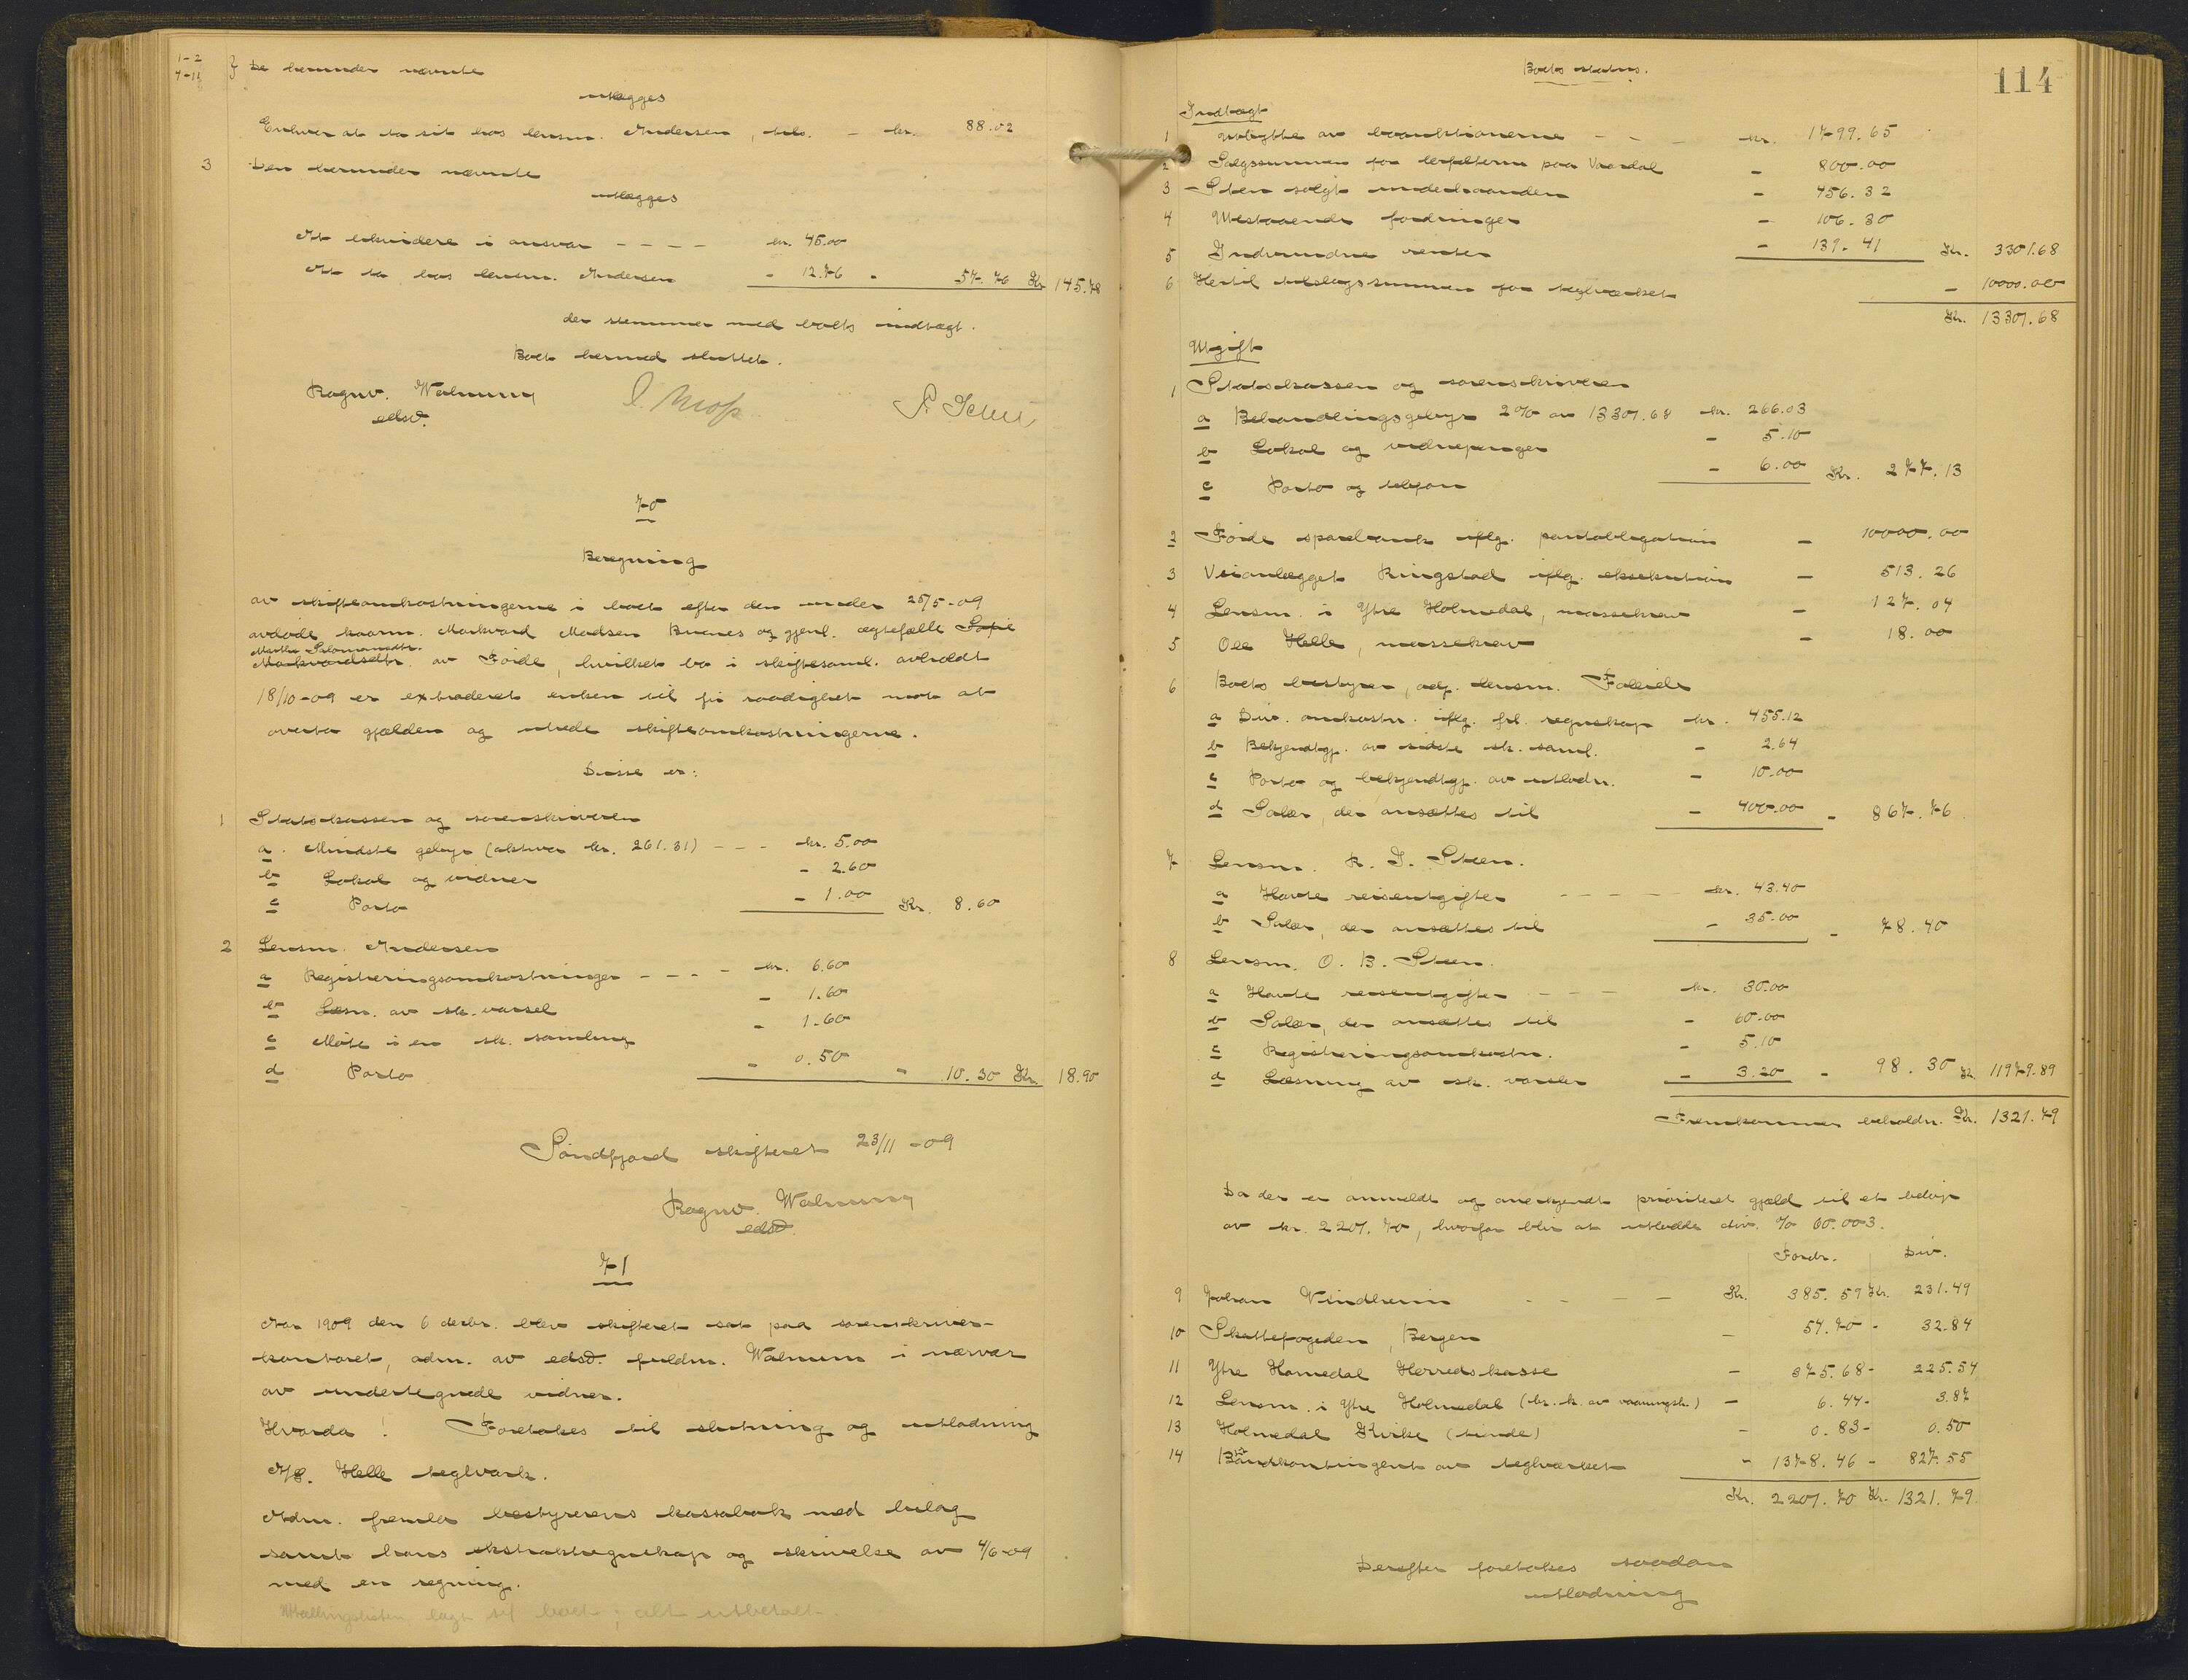 1-2
4-11 } De herunder nævnte
utlægges
Enhver at ta sit hos lensm. Andersen, tils. - kr. 88.02
3 Den herunder nævnte
utlægges
At likvidere i ansvar - - - - kr. 45.00
At ta hos lensm. Andersen - 12.76 - 57.76 Kr. 145.78
der stemmer med boets indtægt.
Boet hermed sluttet.
Ragnv. Walnum
edsv.
70
Beregning
av skifteomkostningerne i boet efter den under 25/5-09
avdøde kaarm. Markvard Madsen Brunes og gjenl. ægtefælle Sofie
Marthe Salomonsdtr.
Markvardsdtr. av Førde, hvilket bo i skiftesaml. avholdt
18/10-09 er extraderet enken til fri raadighet mot at
overta gjælden og utrede skifteomkostningerne.
Disse er:
1 Statskassen og sorenskriveren
a. Mindste gebyr (aktiva kr. 261.31) - - - kr. 5.00
b Lokal og vidner - 2.60
c Porto - 1.00 Kr. 8.60
2 Lensm. Andersen
a Registreringsomkostninger - - - - kr. 6.60
b Læsn. av sk. varsel - 1.60
c Møte i en sk. samling - 1.60
d Porto - 0.50 - 10.30 Kr. 18.90
Søndfjord skifteret 23/11-09
Ragnv. Walnum
edsv.
71
Aar 1909 den 6 decbr. blev skifteret sat paa sorenskriver-
kontoret, adm. av edsv. fuldm. Walnum i nærvær
av undertegnede vidner.
Hvorda! Foretokes til slutning og utlodning
A/S. Helle teglverk.
Adm. fremla bestyrerens kassabok med bilag
samt hans ekstraktregnskap og skrivelse av 4/6-09
med en regning.
Utallingslisten lagt til boet; alt utbetalt.
114
Boets status.
Indtægt
1 Utbytte av boauktionerne - - - kr. 1799.65
2 Salgssummen for lerfelterne paa Vaardal - 800.00
3 - Sten solgt underhaanden - 456.32
4 Utestaaende fordringer - 106.30
5 Indvundne renter - 139.41 Kr. 3301.68
6 Hertil tilslagssummen for teglverket - 10000.00
Kr. 13301.68
Utgift
1 Statskassen og sorenskriveren
a Behandlingsgebyr 2% av 13301.68 kr. 266.03
b Lokal og vidnepenger - 5.10
c Porto og telefon - 6.00 Kr. 277.13
2 Førde sparebank iflg. pantobligation - 10000.00
3 Veianlægget Ringstad iflg. eksekution - 513.26
4 Lensm. i Ytre Holmedal, massekrav - 127.04
5 Ole Helle, massekrav - 18.00
6 Boets bestyrer, adj. lensm.Føleide
a Div. omkostn. iflg. frl. regnskap kr. 455.12
b Bekjendtgj. av sidste sk. saml. - 2.64
c Porto og bekjendtgj. av utlodn. - 10.00
d Salær, der ansættes til - 400.00 - 867.76
7 Lensm. R. J. Steen.
a Havte reiseutgifter - - - - kr. 43.40
b Salær, der ansættes til - 35.00 - 78.40
8 Lensm. O. B. Steen.
a Havte reiseutgifter - - - kr. 30.00
b Salær, der ansættes til - 60.00
c Registreringsomkostn. - 5.10
d Læsning av sk. varsler - 3.20 - 98.30 Kr. 11979.89
Fremkommer beholdn. Kr. 1321.79
Da der er anmeldt og anerkjendt prioritert gjæld til et beløp
av kr. 2201.70, hvorfor blir at utlodde div. % 60.003.
Fordr. Div.
9 Johan Vindheim - - - - Kr. 385.59 Kr. 231.49
10 Skattefogeden, Bergen - 54.70 - 32.84
11 Ytre Homedal Herredskasse - 375.68 - 225.54
12 Lensm. i Ytre Holmedal (kr. k. av vaaningsh.) - 6.44 - 3.87
13 Holmedal Kirke (tiende) - 0.83 - 0.50
14 Brandkontingent av teglværket - 1378.46 - 827.55
Kr. 2201.70 Kr. 1321.79.
Derefter foretokes saadan
utlodning